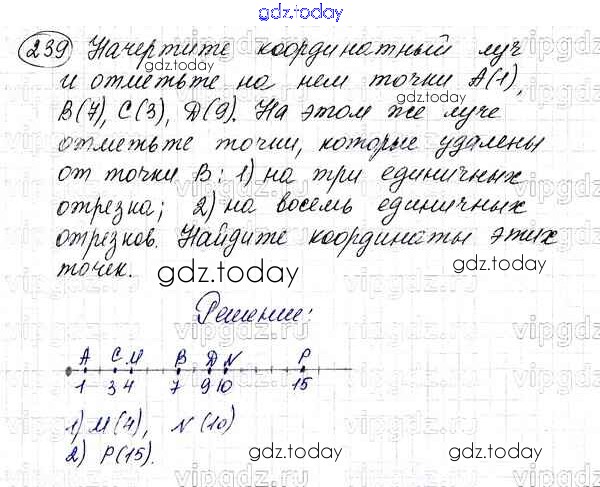 gdz.today
239 Начертите координатный луч
gdz.today
и отметьте на нем точки А(1),
В(7), С(3), D(9). На этом же луче
отметьте точки, которые удалены
от точки В: 1) на три единичных
отрезка; 2) на восемь единичных
отрезков. Найдите координаты этих
точек.
gdz.today
Решение:
А С М В D N P
1 3 4 7 9 10 15
1) М(4), N(10)
2) Р(15).
gdz.today gdz.today
vipgdz.ru